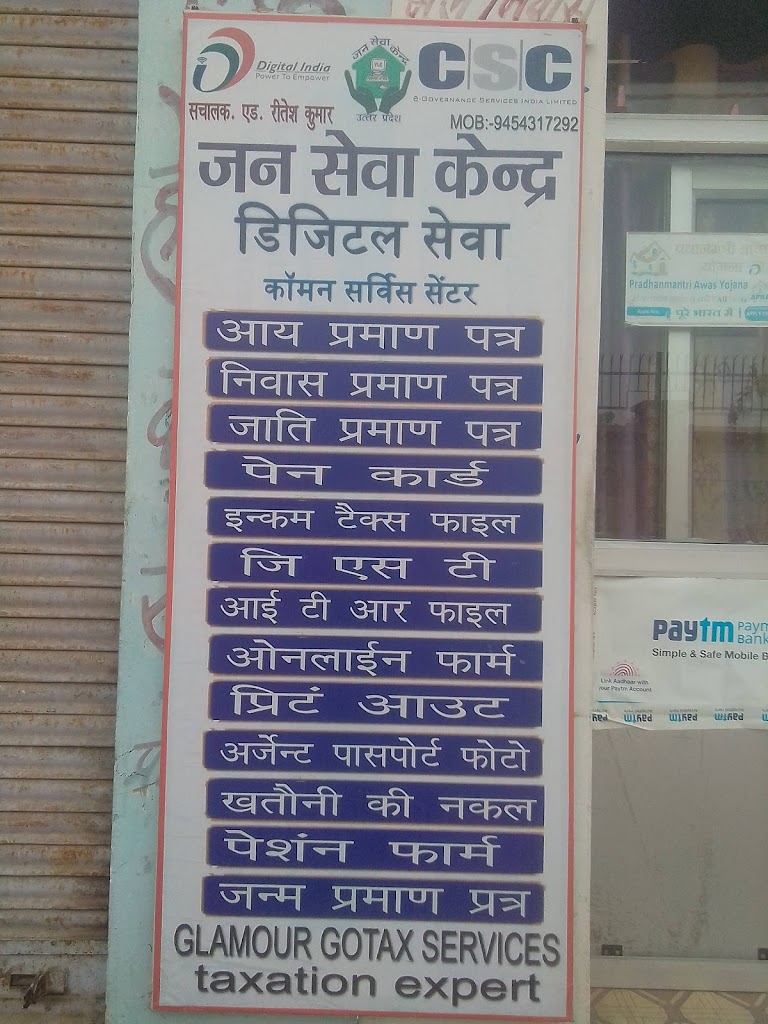 Digital India
Power To Empower
जन सेवा केन्द्र
उत्तर प्रदेश
CSC
e-Governance Services India Limited
सचालक. एड. रीतेश कुमार
MOB:-9454317292
जन सेवा केन्द्र
डिजिटल सेवा
कॉमन सर्विस सेंटर
आय प्रमाण पत्र
निवास प्रमाण पत्र
जाति प्रमाण पत्र
पेन कार्ड
इन्कम टैक्स फाइल
जि एस टी
आई टी आर फाइल
ओनलाईन फार्म
प्रिटं आउट
अर्जेन्ट पासपोर्ट फोटो
खतौनी की नकल
पेशंन फार्म
जन्म प्रमाण प्रत्र
GLAMOUR GOTAX SERVICES
taxation expert
Pradhanmantri Awas Yojana
पूरे भारत में |
paytm
Simple & Safe Mobile
Link Aadhaar with
your Paytm Account
paytm paytm paytm paytm